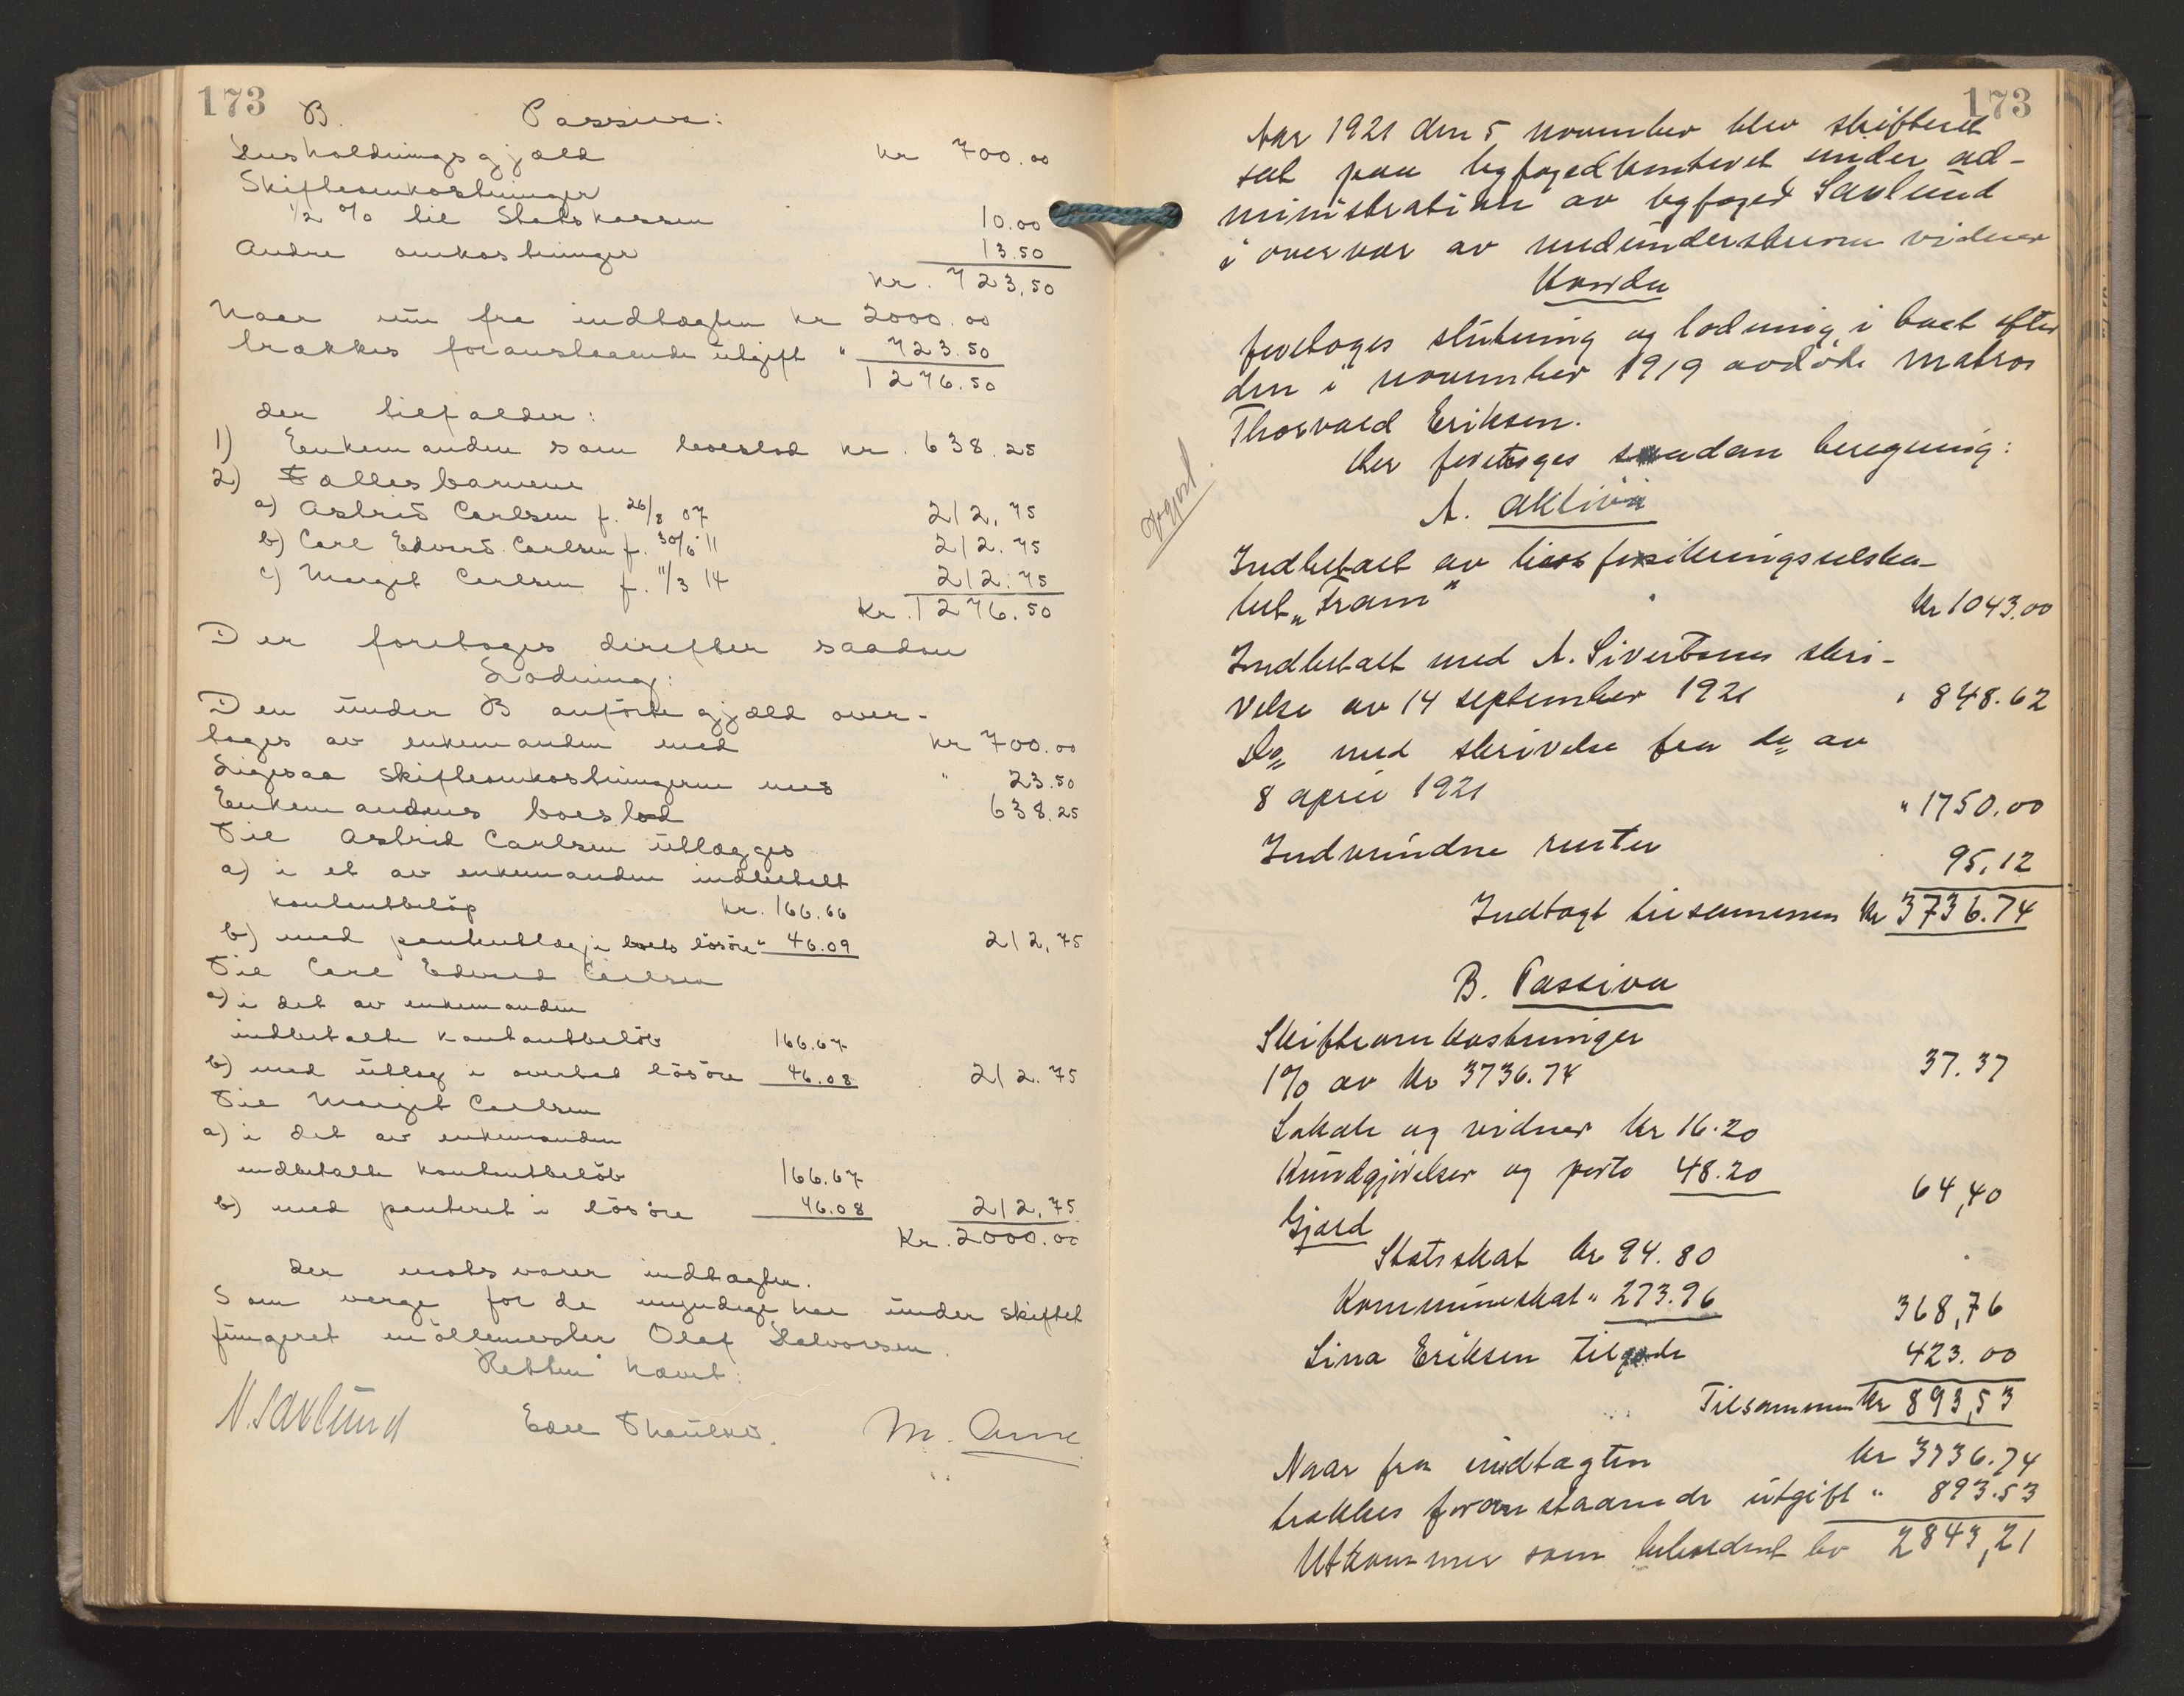 173
B. Passiva:
Husholdningsgjæld kr 700.00
Skifteomkostninger
1/2 % til Statskassen 10.00
Andre omkostninger 13.50
kr. 723.50
Naar nu fra indtægten kr 2000.00
trækkes foranstaaende utgift " 723.50
1276.50
der tilfalder:
1) Enkemanden som boeslod kr. 638.25
2) Fællesbarnene
a) Astrid Carlsen f. 26/8 07 212,75
b) Carl Edvard Carlsen f. 30/6 11 212.75
c) Margit Carlsen f. 11/3 14 212.75
Kr. 1276.50
Der foretoges derefter saadan
Lodning:
Den under B anførte gjæld over-
tages av enkemanden med kr 700.00
Ligesaa skifteomkostningerne med " 23.50
Enkemandens boeslod 638.25
Til Astrid Carlsen utlægges
a) i et av enkemanden indbetalt
kontantbeløp kr. 166.66
b) med panteutlæg i boets løsøre " 46.09 212,75
Til Carl Edvard Carlsen
a) i det av enkemanden
indbetalte kontantbeløb 166.67
b) med utlæg i løsøre 46.08 212.75
Til Margit Carlsen
a) i det av enkemanden
indbetalte kontantbeløb 166.67
b) med panteret i løsøre 46.08 212,75
Kr. 2000.00
der motsvarer indtægten.
Som verge for de umyndige har under skiftet
fungeret møllemester Olaf Halvorsen.
Retten hævet:
N. Savlund M. Arne
173
Aar 1921 den 5 november blev skifteret
sat paa byfogedkontoret under ad-
ministration av byfoged Savlund
i overvær av medunderskrevne vidner
Hvorda
foretoges slutning og lodning i boet efter
den i november 1919 avdøde matros
Thorvald Eriksen.
Der foretoges saadan beregning:
Avgjort
A. Aktiva
Indbetalt av livsforsikringsselska-
bet „Fram" kr 1043.00
Indbetalt med A. Sivertsens skri-
velse av 14 september 1921 " 848.62
Do med skrivelse fra do av
8 april 1921 " 1750.00
Indvundne renter 95,12
Indtægt tilsammen kr 3736.74
B. Passiva
Skifteomkostninger
1% av kr 3736.74 37.37
Lokale og vidner kr 16.20
Kundgjørelser og porto 48.20 64,40
Gjæld
Statsskat kr 94.80
Kommuneskat " 273.96 368,76
Lina Eriksen tilgode 423.00
Tilsammen kr 893,53
Naar fra indtægten kr 3736.74
trækkes foranstaaende utgift " 893.53
Utkommer som beholdent bo 2843,21